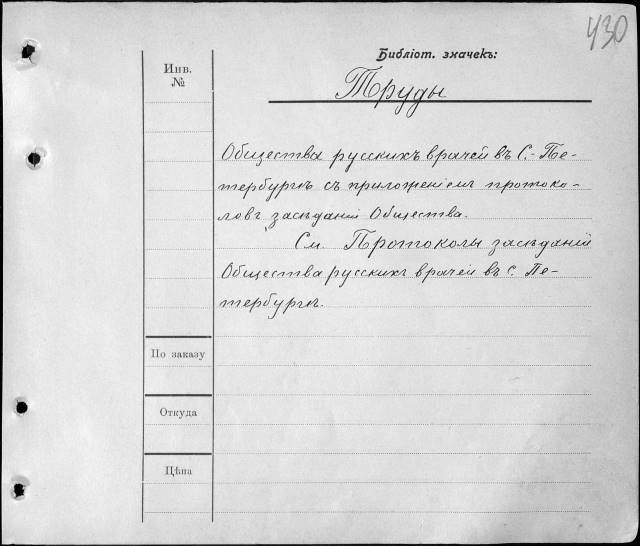 430
Библіот. значекъ:
Инв.
№
Труды
Общества русскихъ врачей въ С.-Пе-
тербургѣ съ приложеніемъ протоко-
ловъ засѣданій Общества.
См. Протоколы засѣданій
Общества русскихъ врачей въ С. Пе-
тербургѣ.
По заказу
Откуда
Цѣна